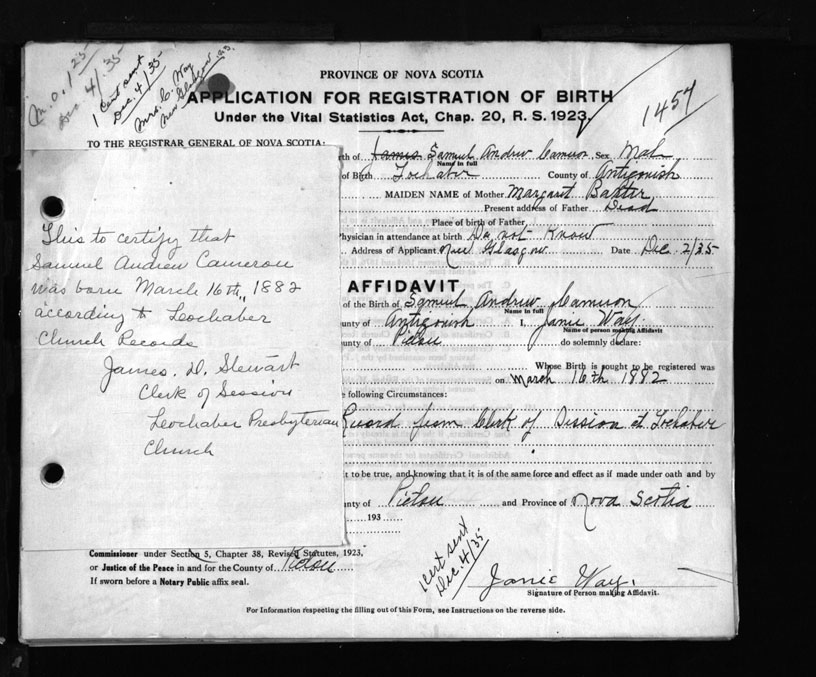 M.O. 1 25
Dec 4/35
1 Cert sent
Dec. 4/35
Mrs. C. Way
New Glasgow N.S.
PROVINCE OF NOVA SCOTIA
APPLICATION FOR REGISTRATION OF BIRTH
Under the Vital Statistics Act, Chap. 20, R. S. 1923.
1457
TO THE REGISTRAR GENERAL OF NOVA SCOTIA:
rth of James Samuel Andrew Cameron Sex Male
Name in full
of Birth Lochaber County of Antigonish
MAIDEN NAME of Mother Margaret Baxter
Present address of Father Dead
Place of birth of Father
Physician in attendance at birth Do not Know
Address of Applicant New Glasgow Date Dec. 2/35
This to certify that
Samuel Andrew Cameron
was born March 16th, 1882
according to Leochaber
Church Records
James. D. Stewart
Clerk of Session
Leochaber Presbyterian
Church
AFFIDAVIT
of the Birth of Samuel Andrew Cameron
Name in full
unty of Antigonish I, Janie Way.
Name of person making Affidavit
unty of Pictou do solemnly declare:
Whose Birth is sought to be registered was
on March 16th 1882
e following Circumstances:
Record from Clerk of Session at Lochaber
t to be true, and knowing that it is of the same force and effect as if made under oath and by
unty of Pictou and Province of Nova Scotia
193
Commissioner under Section 5, Chapter 38, Revised Statutes, 1923,
or Justice of the Peace in and for the County of Pictou
If sworn before a Notary Public affix seal.
1 Cert sent
Dec. 4/35
Janie Way.
Signature of Person making Affidavit.
For Information respecting the filling out of this Form, see Instructions on the reverse side.